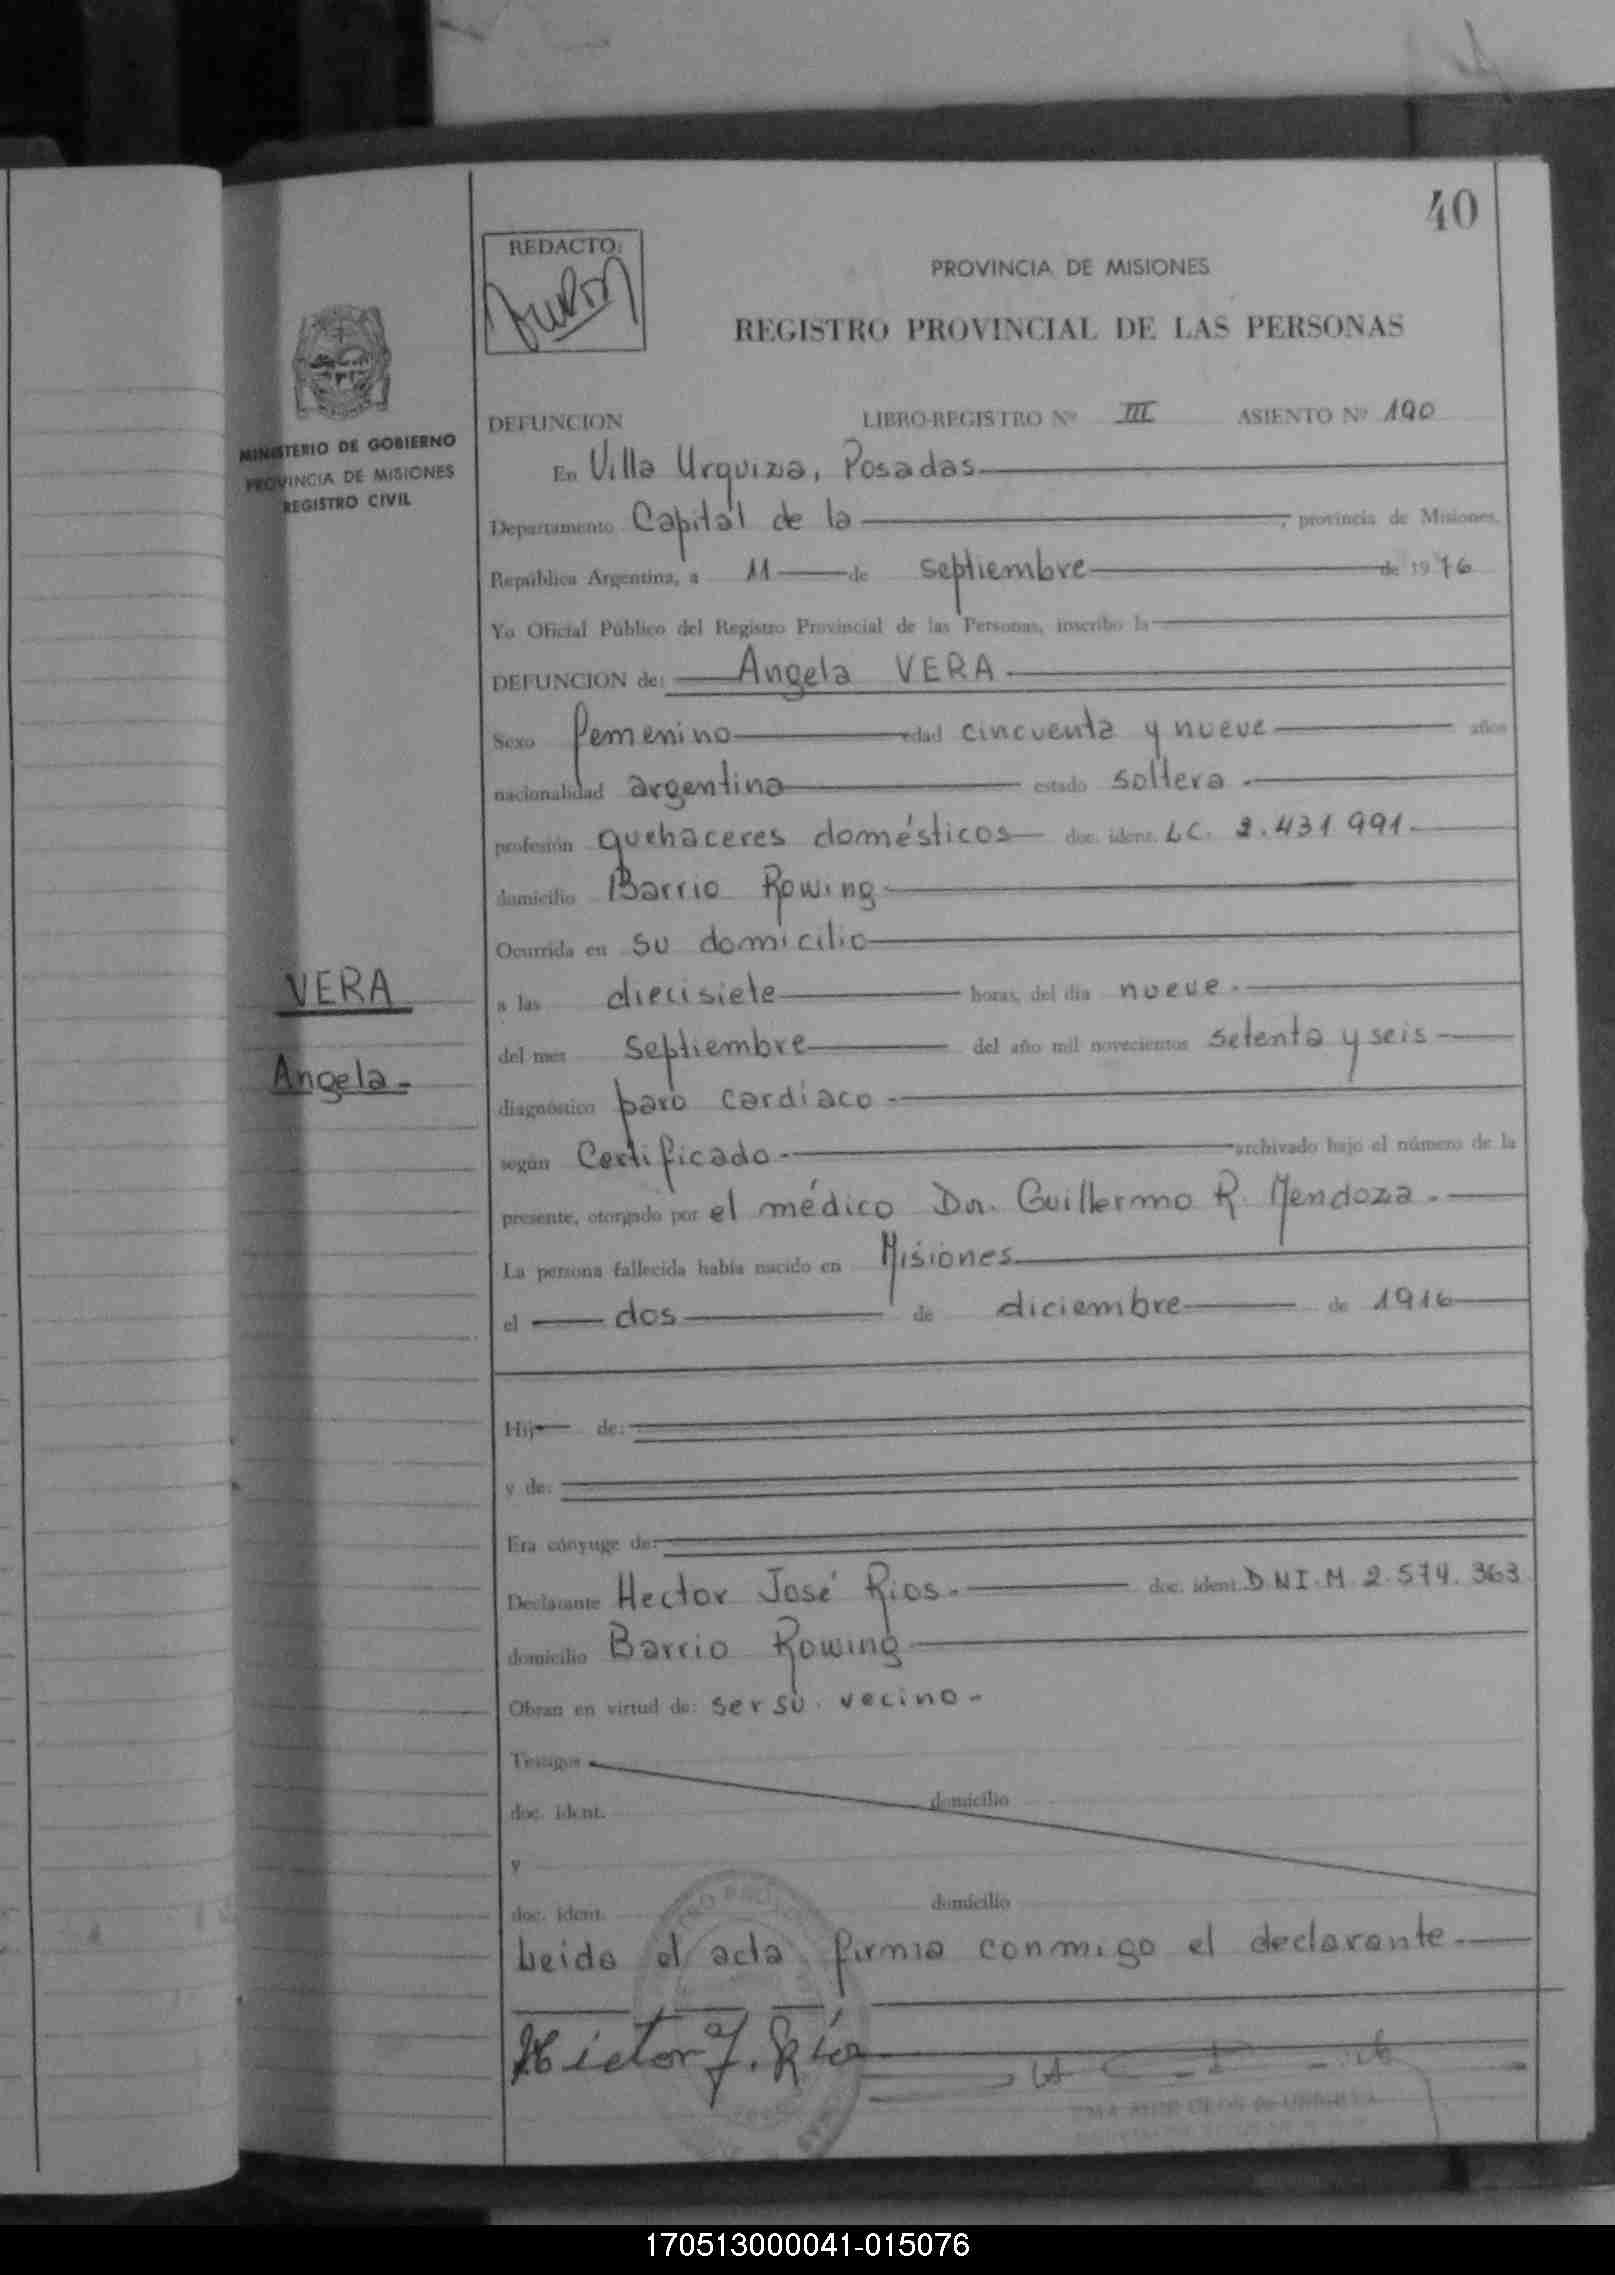 40
REDACTO:
PROVINCIA DE MISIONES
REGISTRO PROVINCIAL DE LAS PERSONAS
MINISTERIO DE GOBIERNO
PROVINCIA DE MISIONES
REGISTRO CIVIL
DEFUNCION LIBRO-REGISTRO Nº III ASIENTO Nº 190
En Villa Urquiza, Posadas
Departamento Capital de la, provincia de Misiones,
República Argentina, a 11 de septiembre de 1976
Yo Oficial Público del Registro Provincial de las Personas, inscribo la
DEFUNCION de: Angela VERA
Sexo femenino edad cincuenta y nueve años
nacionalidad argentina estado soltera.
profesión quehaceres domésticos doc. ident. LC. 2.431.991.
domicilio Barrio Rowing
Ocurrida en su domicilio
VERA
Angela.-
a las diecisiete horas, del día nueve.
del mes septiembre del año mil novecientos setenta y seis
diagnóstico paro cardiaco.
según Certificado. archivado bajo el número de la
presente, otorgado por el médico Dr. Guillermo R. Mendoza.
La persona fallecida había nacido en Misiones
el dos de diciembre de 1916
Hij de:
y de:
Era cónyuge de:
Declarante Hector José Rios. doc. ident. D.N.I.M. 2.574.363
domicilio Barrio Rowing
Obran en virtud de: ser su vecino.-
Testigos
doc. ident. domicilio
y
doc. ident. domicilio
Leida el acta firma conmigo el declarante.
Hector J. Ríos
170513000041-015076